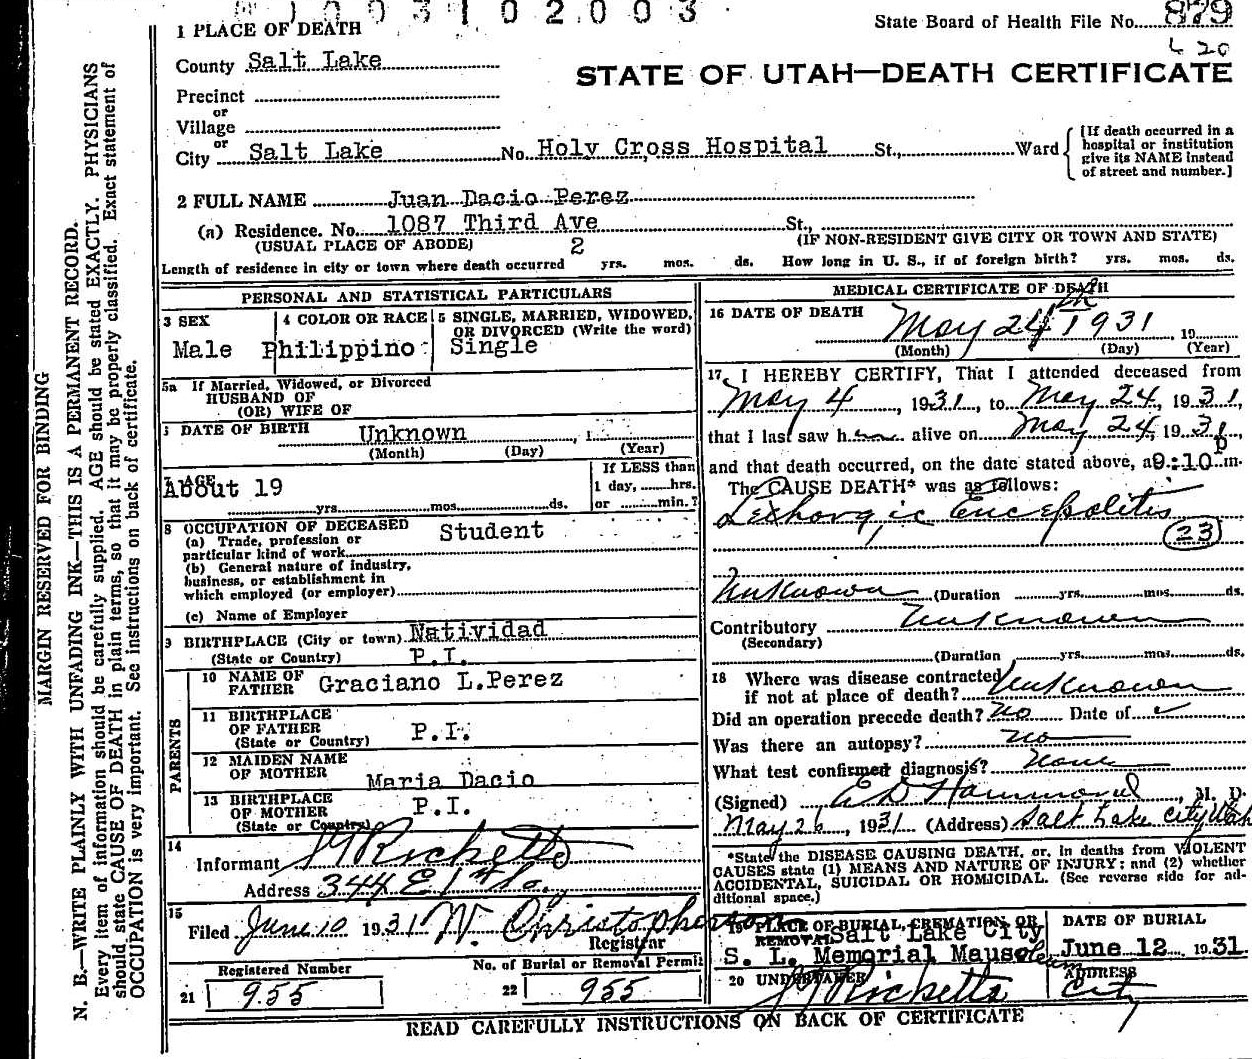 1003102003
State Board of Health File No. 879
L 20
1 PLACE OF DEATH
County Salt Lake
STATE OF UTAH—DEATH CERTIFICATE
Precinct
or
Village
or
City Salt Lake No. Holy Cross Hospital St., Ward {[If death occurred in a hospital or institution give its NAME instead of street and number.]
2 FULL NAME Juan Dacio Perez
(a) Residence. No. 1087 Third Ave St.,
(USUAL PLACE OF ABODE) (IF NON-RESIDENT GIVE CITY OR TOWN AND STATE)
Length of residence in city or town where death occurred 2 yrs. mos. ds. How long in U. S., if of foreign birth? yrs. mos. ds.
PERSONAL AND STATISTICAL PARTICULARS
3 SEX
Male
4 COLOR OR RACE
Philippino
5 SINGLE, MARRIED, WIDOWED, OR DIVORCED (Write the word)
Single
5a If Married, Widowed, or Divorced
HUSBAND OF
(OR) WIFE OF
DATE OF BIRTH Unknown, 1
(Month) (Day) (Year)
7 AGE
About 19
yrs. mos. ds.
If LESS than
1 day, hrs.
or min.?
8 OCCUPATION OF DECEASED Student
(a) Trade, profession or
particular kind of work
(b) General nature of industry,
business, or establishment in
which employed (or employer)
(c) Name of Employer
9 BIRTHPLACE (City or town) Natividad
(State or Country) P.I.
PARENTS
10 NAME OF FATHER Graciano L.Perez
11 BIRTHPLACE OF FATHER
(State or Country) P.I.
12 MAIDEN NAME OF MOTHER Maria Dacio
13 BIRTHPLACE OF MOTHER
(State or Country) P.I.
14
Informant Ricketts
Address 344 E 1st So.
15
Filed June 10 1931 W. Christopherson
Registrar
Registered Number
21 955
No. of Burial or Removal Permit
22 955
MEDICAL CERTIFICATE OF DEATH
16 DATE OF DEATH
May 24th 1931, 19
(Month) (Day) (Year)
17 I HEREBY CERTIFY, That I attended deceased from
May 4, 1931, to May 24, 1931,
that I last saw h alive on May 24, 1931,
and that death occurred, on the date stated above, a 9:10 P m.
The CAUSE DEATH* was as follows:
Lexhorgic Encepolitis
23
Unknown (Duration yrs. mos. ds.
Contributory Unknown
(Secondary)
(Duration yrs. mos. ds.
18 Where was disease contracted
if not at place of death? Unknown
Did an operation precede death? No Date of
Was there an autopsy? no
What test confirmed diagnosis? None
(Signed) E D Hammond, M. D.
May 26, 1931 (Address) Salt Lake City Utah
*State the DISEASE CAUSING DEATH, or, in deaths from VIOLENT
CAUSES state (1) MEANS AND NATURE OF INJURY; and (2) whether
ACCIDENTAL, SUICIDAL OR HOMICIDAL. (See reverse side for ad-
ditional space.)
19 PLACE OF BURIAL, CREMATION, OR
REMOVAL Salt Lake City
S. L. Memorial Mausoleum
DATE OF BURIAL
June 12, 1931.
20 UNDERTAKER
Ricketts
ADDRESS
City
READ CAREFULLY INSTRUCTIONS ON BACK OF CERTIFICATE
MARGIN RESERVED FOR BINDING
N. B.—WRITE PLAINLY WITH UNFADING INK—THIS IS A PERMANENT RECORD.
Every item of information should be carefully supplied. AGE should be stated EXACTLY. PHYSICIANS
should state CAUSE OF DEATH in plain terms, so that it may be properly classified. Exact statement of
OCCUPATION is very important. See instructions on back of certificate.